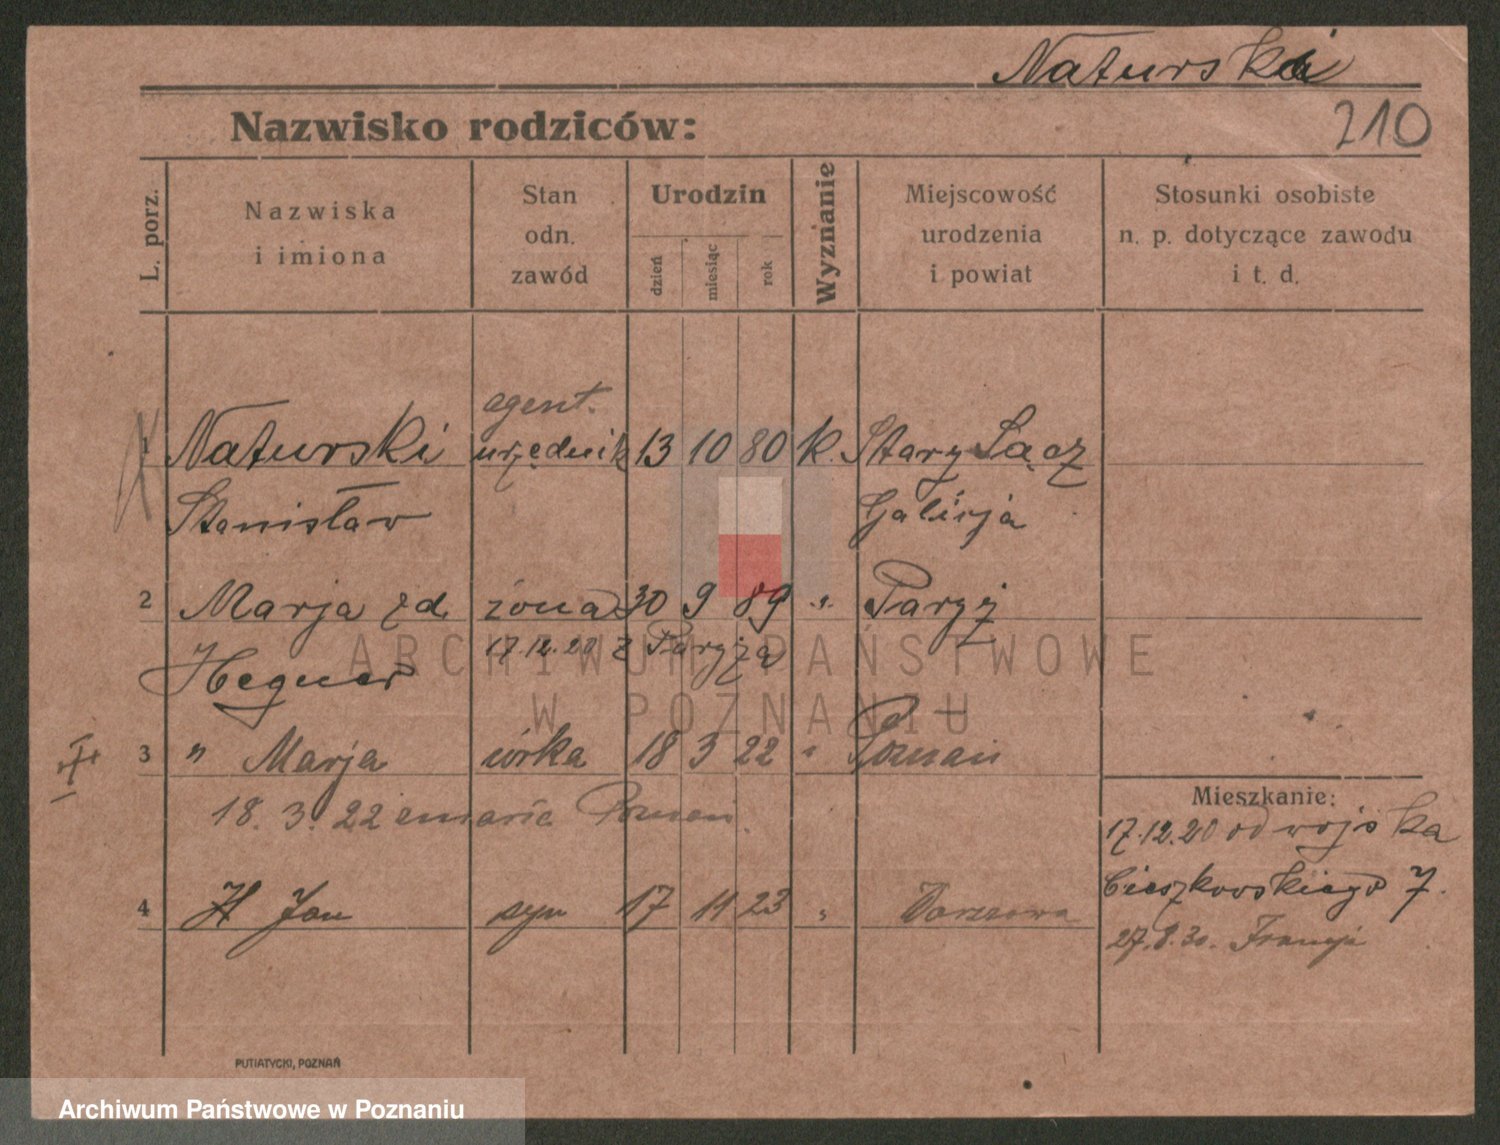 Naturski
210
Nazwisko rodziców:
L. porz.
Nazwiska
i imiona
Stan
odn.
zawód
Urodzin
dzień
miesiąc
rok
Wyznanie
Miejscowość
urodzenia
i powiat
Stosunki osobiste
n. p. dotyczące zawodu
i t. d.
agent.
1 Naturski urzędnik 13 10 80 k. Stary Sącz
Stanisław Galicja
2 Marja zd. żona 30 9 89 „ Paryż
17.12.20 z Paryża
Hegner
3 „ Marja córka 18 3 22 „ Poznań
18. 3. 22 Poznań.
Mieszkanie:
17.12.20 od wojska
Cieszkowskiego 7.
4 Jan syn 17 11 23 „ Warszawa
27.8.30. Francji
PUTIATYCKI, POZNAŃ
ARCHIWUM PAŃSTWOWE
W POZNANIU
Archiwum Państwowe w Poznaniu